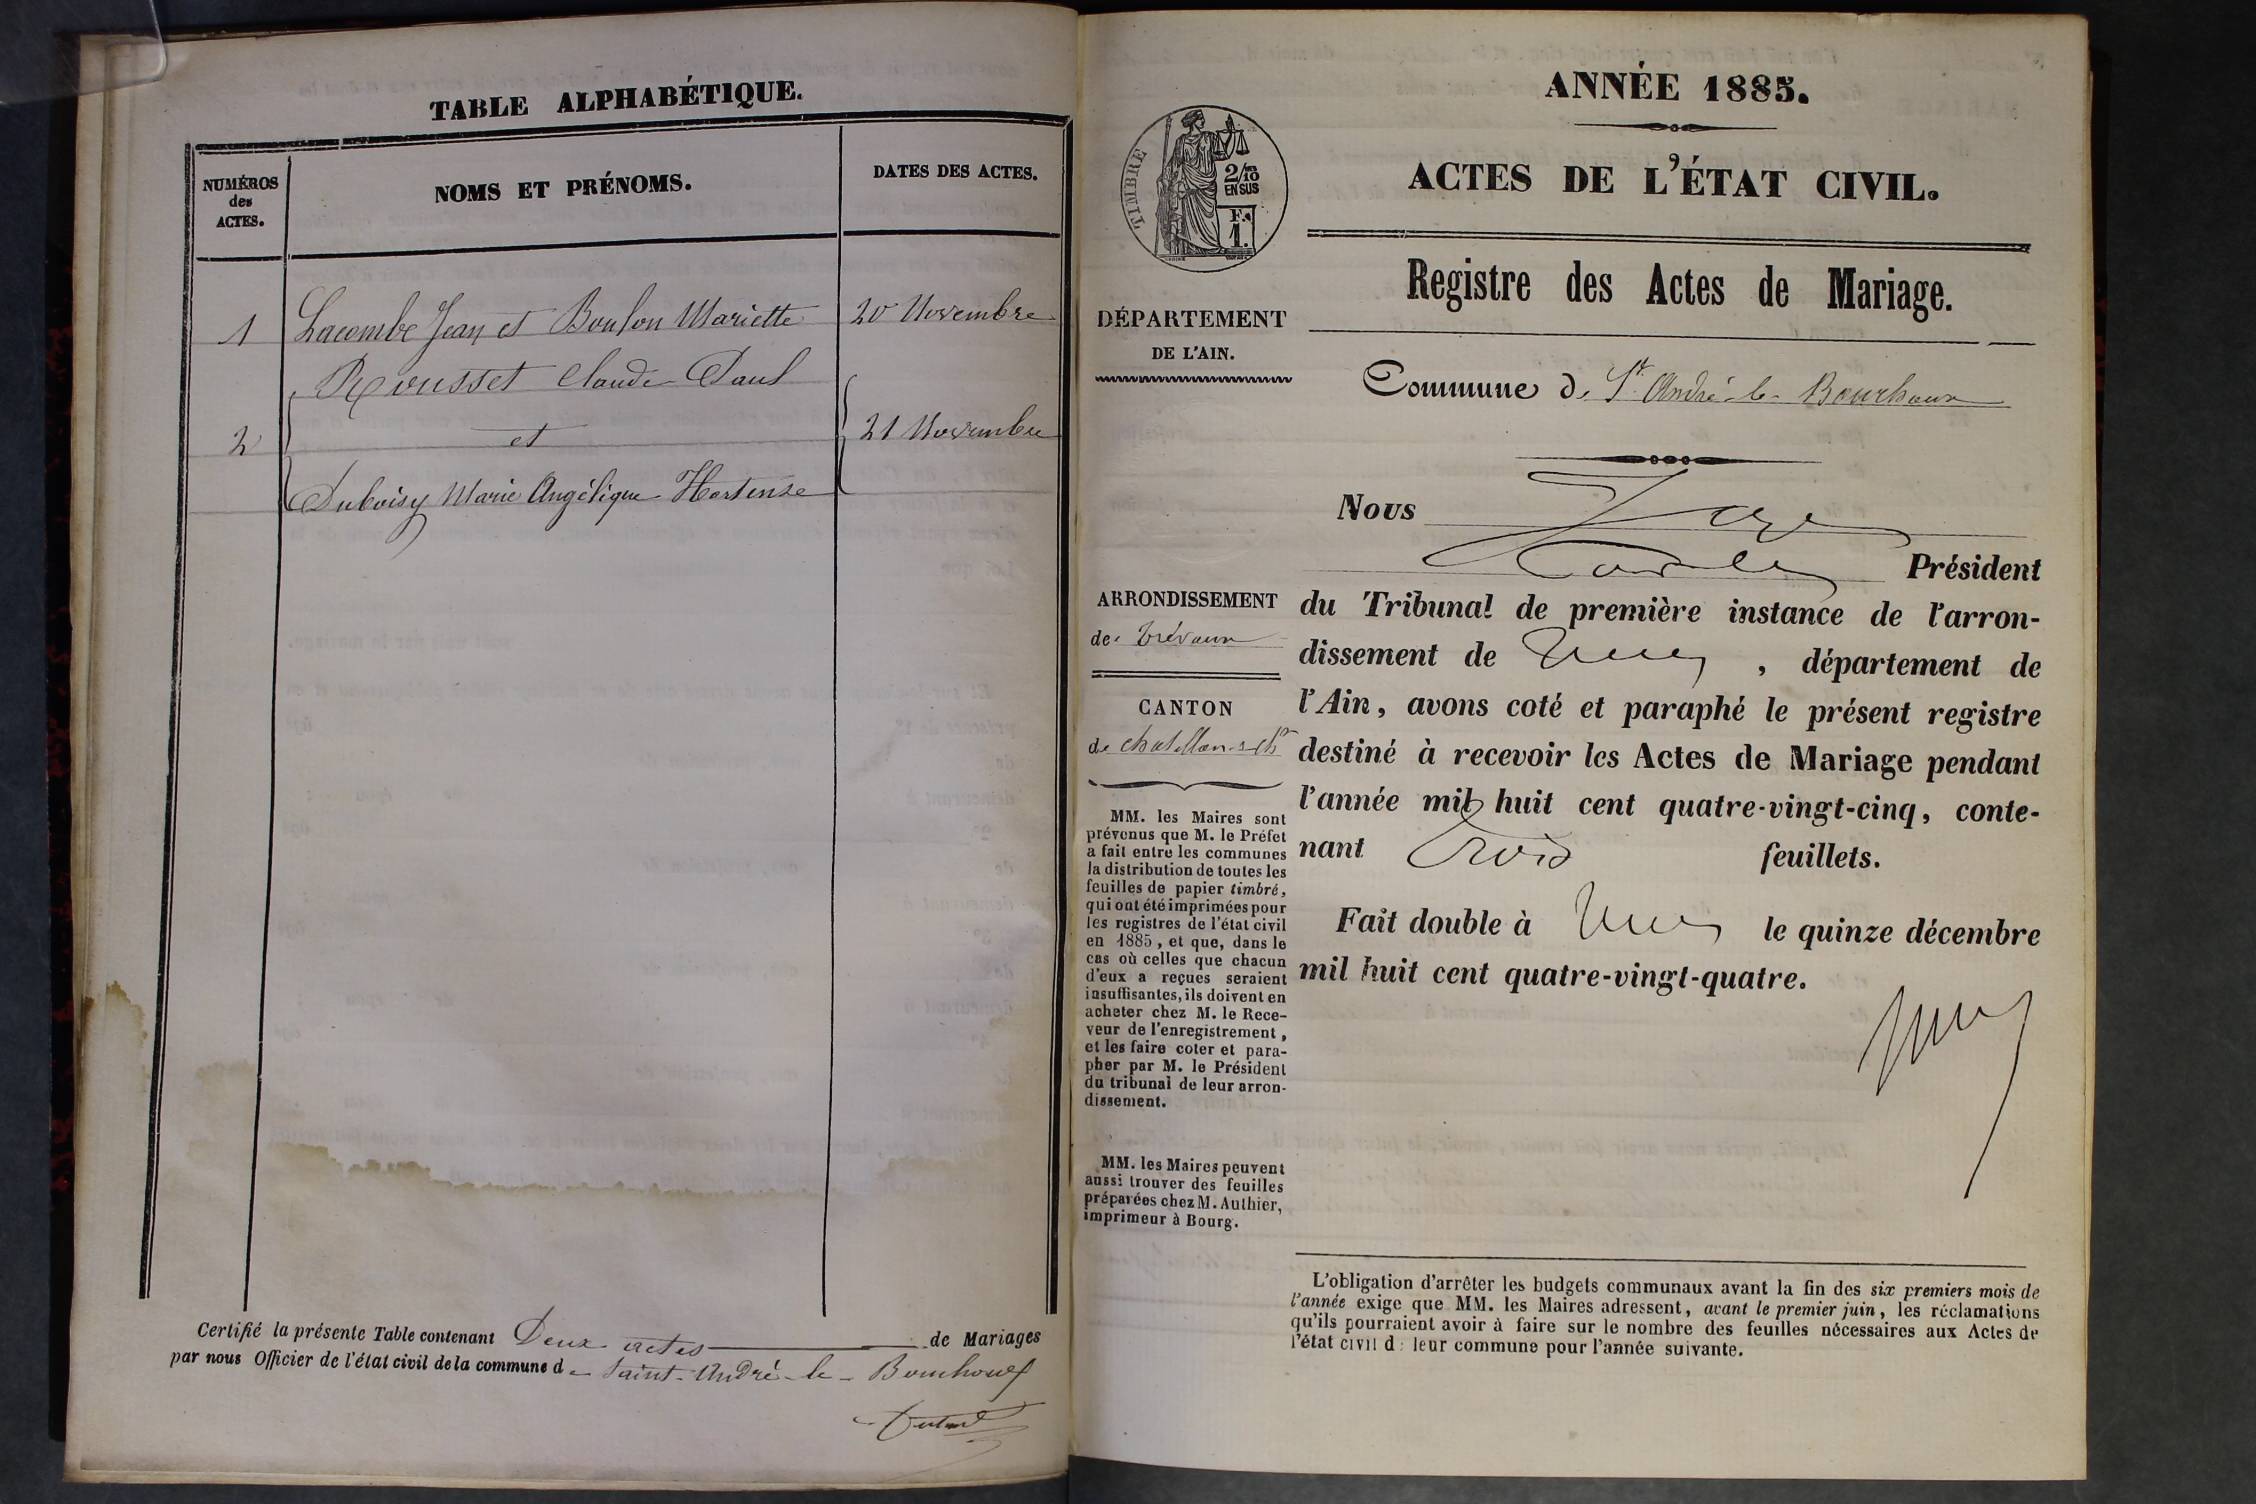 TABLE ALPHABÉTIQUE.
NUMÉROS
des
ACTES.
NOMS ET PRÉNOMS.
DATES DES ACTES.
1 Lacombe Jean et Boulon Mariette 20 Novembre
Rousset Claude Paul
2 et 21 Novembre
Duboisy Marie Angélique Hortense
Certifié la présente Table contenant Deux actes de Mariages
par nous Officier de l'état civil de la commune de Saint-André-le-Bouchoux
ANNÉE 1885.
ACTES DE L'ÉTAT CIVIL.
TIMBRE
2/10
EN SUS
F.
1.
Registre des Actes de Mariage.
DÉPARTEMENT
DE L'AIN.
Commune de St André-le-Bouchoux
Nous
Président
ARRONDISSEMENT
de Trévoux
CANTON
de chatillon-s-ch
du Tribunal de première instance de l'arron-
dissement de , département de
l'Ain, avons coté et paraphé le présent registre
destiné à recevoir les Actes de Mariage pendant
l'année mil huit cent quatre-vingt-cinq, conte-
nant Trois feuillets.
Fait double à le quinze décembre
mil huit cent quatre-vingt-quatre.
MM. les Maires sont
prévenus que M. le Préfet
a fait entre les communes
la distribution de toutes les
feuilles de papier timbré,
qui ont été imprimées pour
les registres de l'état civil
en 1885, et que, dans le
cas où celles que chacun
d'eux a reçues seraient
insuffisantes, ils doivent en
acheter chez M. le Rece-
veur de l'enregistrement,
et les faire coter et para-
pher par M. le Président
du tribunal de leur arron-
dissement.
MM. les Maires peuvent
aussi trouver des feuilles
préparées chez M. Authier,
imprimeur à Bourg.
L'obligation d'arrêter les budgets communaux avant la fin des six premiers mois de
l'année exige que MM. les Maires adressent, avant le premier juin, les réclamations
qu'ils pourraient avoir à faire sur le nombre des feuilles nécessaires aux Actes de
l'état civil d leur commune pour l'année suivante.